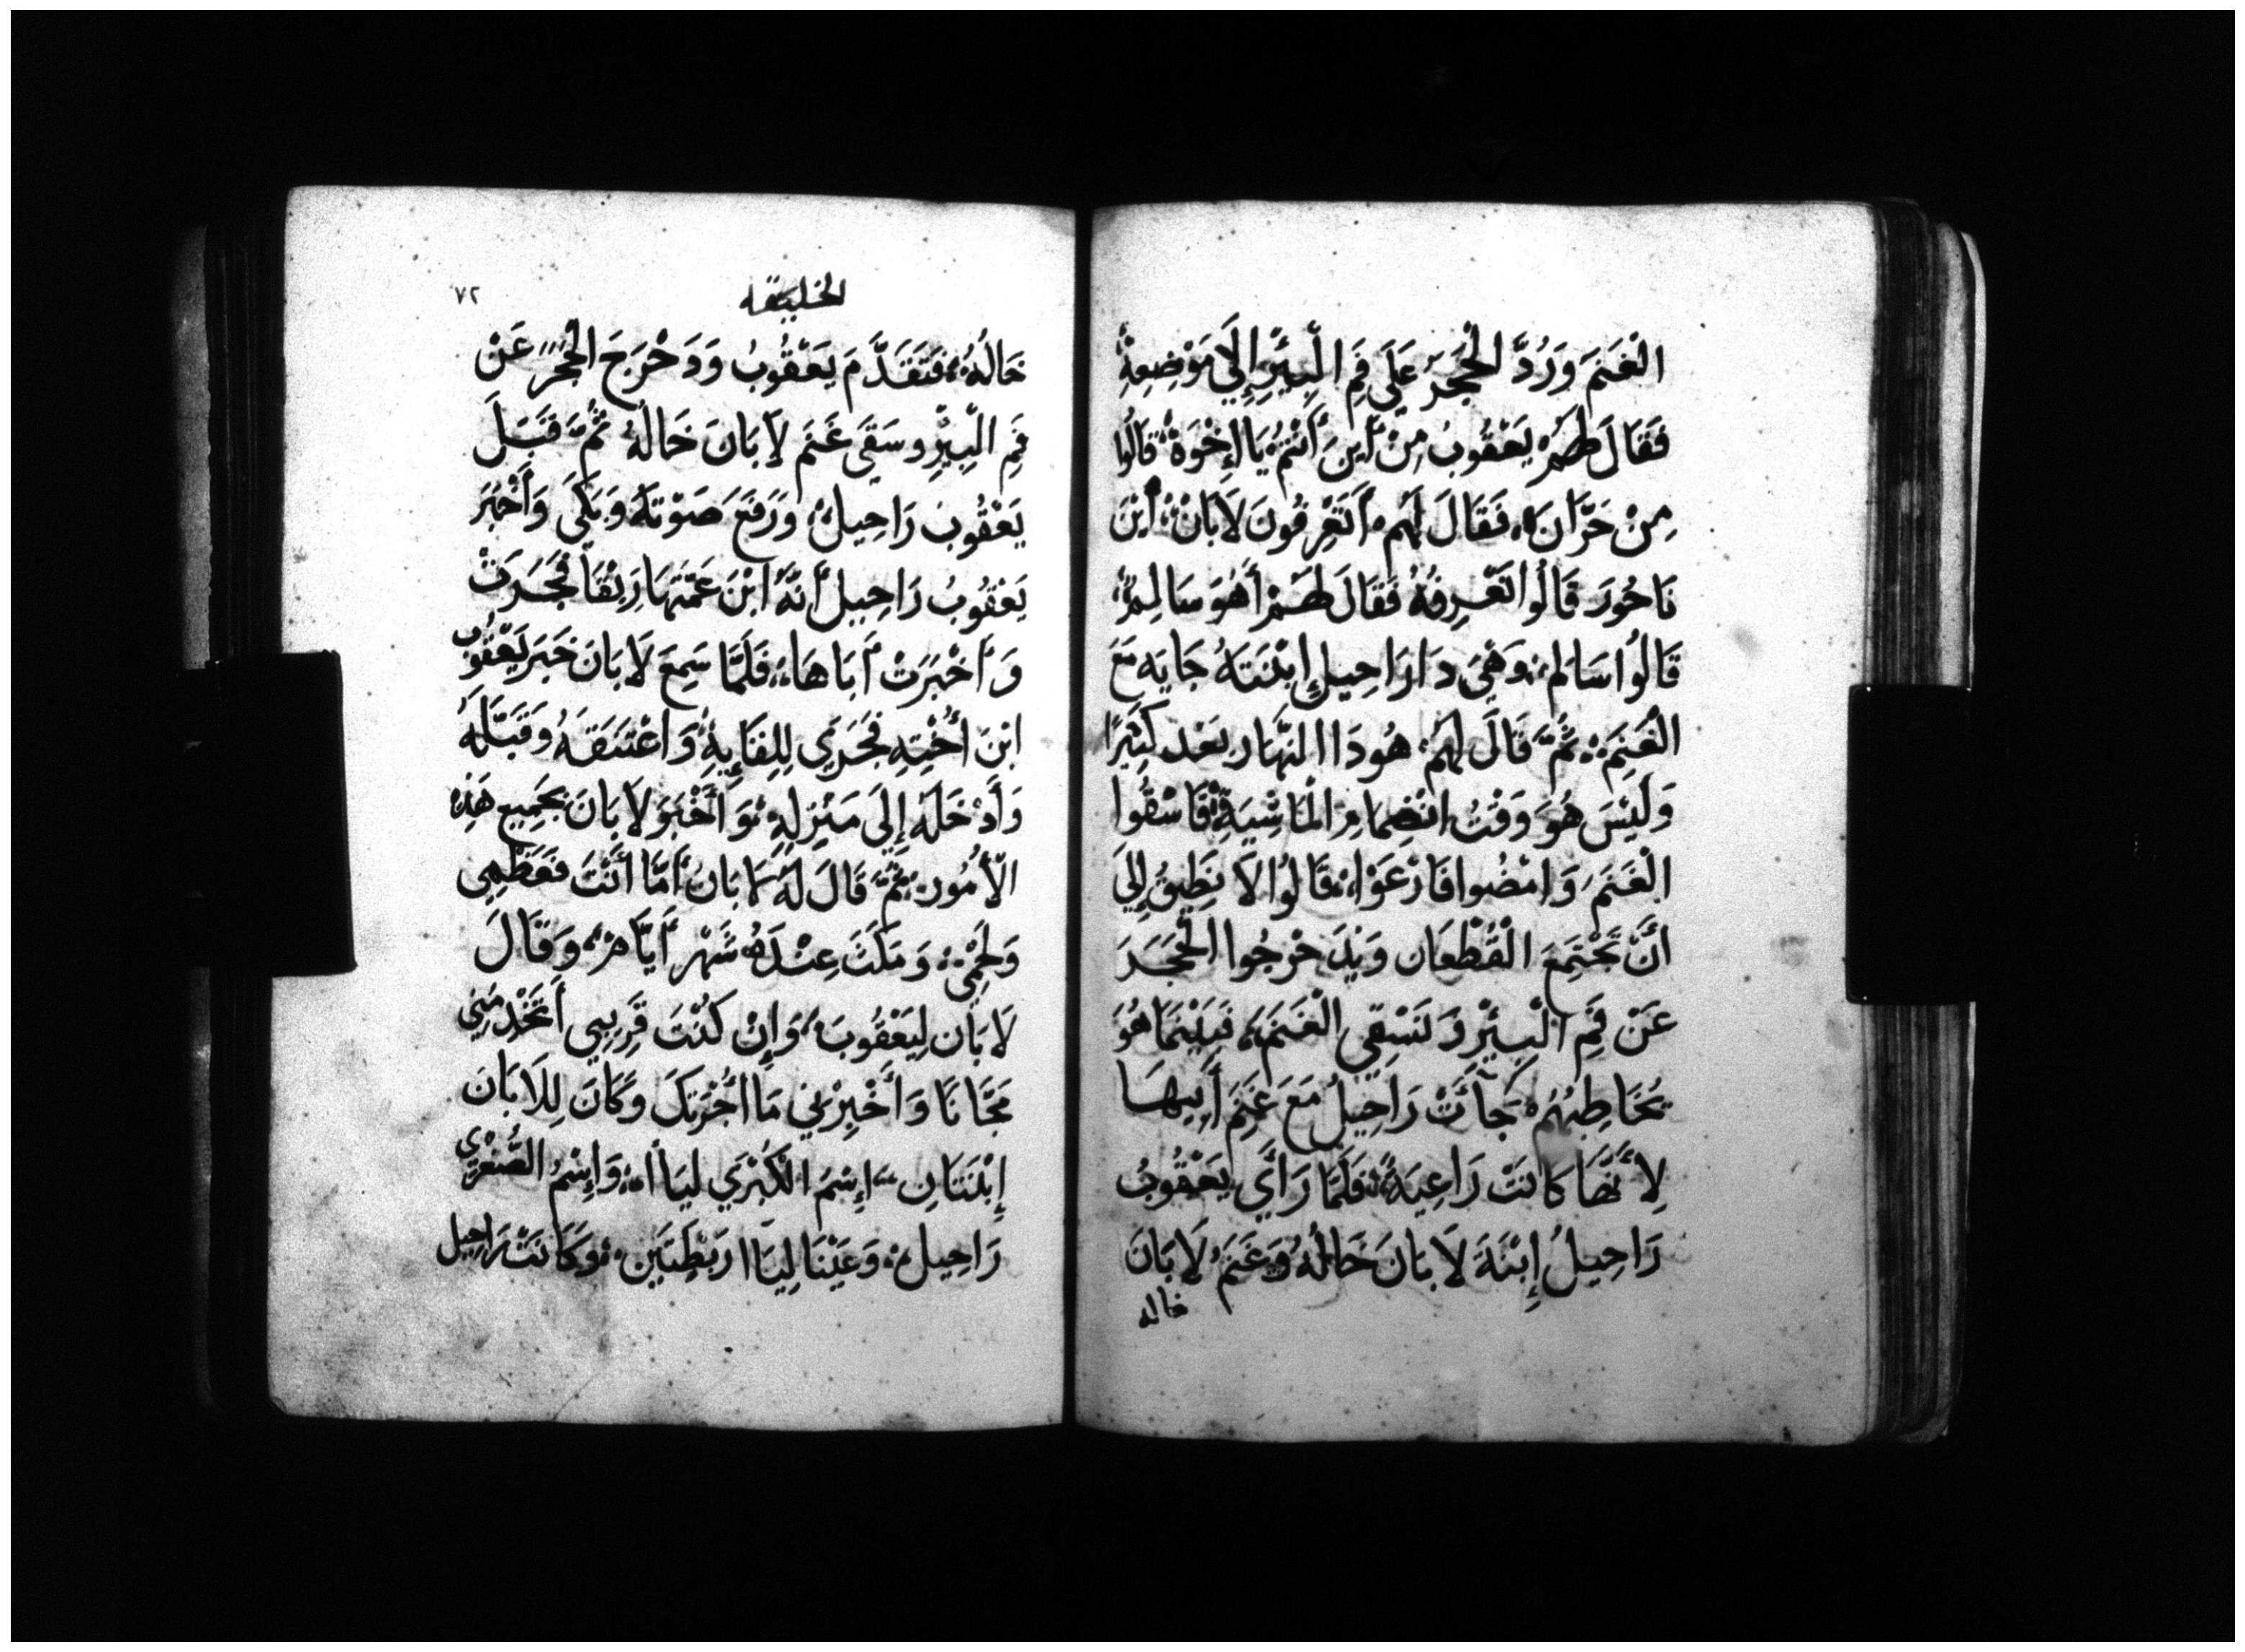 الْغَنَمَ وَرُدَّ الْحَجَرَ عَلَى فَمِ الْبِيْرِ إِلَي مَوْضِعِهِ
فَقَالَ لَهُمْ يَعْقُوبُ مِنْ أَينَ أَنْتُمْ يَا إِخْوَةْ قَالُوا
مِنْ حَرَّانَ فَقَالَ لَهُمْ أَتَعْرِفُونَ لَابَانْ أبْنَ
نَاحُورَ قَالُوا نَعْرِفُهُ فَقَالَ لَهُمْ أَهُوَ سَالِمٌ
قَالُوا سَالم وَهِيَ دَا رَاحِيل إِبْنَتَهُ جَايَه مَعَ
الْغَنَمِ ثُمَّ قَالَ لَهُمْ هُودَا النَّهَار بَعْد كَثِيْرًا
وَلَيْسَ هُوَ وَقْتُ انْضِمَامِ الْمَاشِيَةِ فَاسْقُوا
الْغَنَمَ وَامْضُوا فَارْعَوْا قَالُوا لَا نَطِيقُ إِلِيَ
أَنَّ تَجْتَمِعَ الْقُطْعَان وَيُدَحْرِجُوا الْحَجَرَ
عَنْ فَمِ الْبِيْرْ وَنَسْقِي الْغَنَمَ فَبَيْنَمَا هُوَ
يُخَاطِبُهُمْ جَأَتْ رَاحِيلُ مَعَ غَنَمِ أَبِيهَا
لِأَنَّهَا كَانَتْ رَاعِيَةً فَلَمَّا رَأَي يَعْقُوبُ
رَاحِيلُ إِبْنَةَ لَابانَ خَالُهُ وَغَنَمُ لَابَانَ
خاله
الخليقه
٧٢
خَالُهُ فَتَقَدَّمَ يَعْقُوبُ وَدَحْرَجَ الْحَجَرَ عَنْ
فَمِ الْبِيْرِ وسَقَي غَنَمَ لَابَانَ خَالُهُ ثُمَّ قَبَّلَ
يَعْقُوبَ رَاحِيلُ وَرَفَعَ صَوْتَهُ وَبَكَى وَأَخْبَرَ
يَعْقُوبُ رَاحِيل أَنَّهُ ابْنَ عَمَّتِهَا رِبْقَا فَجَرَتْ
وَأَخْبَرَتْ أَبَاهَا فَلَمَّا سَمِعَ لَابَانَ خَبَر يَعْقُوبَ
ابْنَ أُخْتِهِ فَجَرَي لِلِقَايِهِ وَاعْتَنَقَهُ وَقَبَّلَهُ
وَأَدْخَلَهُ إِلَى مَنْزِلِهِ وَأَخْبَرَ لَابَانَ بَجَمِيعِ هَذِهْ
الْأُمُور ثُمَّ قَالَ لَهُ لَابَانُ أَمَّا أَنْتَ فَعَظْمِي
وَلَحْمِي وَمَكَثَ عِنْدَهُ شَهْر أَيَّامْ وَقَالَ
لَابَان لِيَعْقُوبَ وَإِنْ كُنْتَ قَرِيبِي أَتَخْدِمْنِي
مَجَّانًا وَأَخْبِرْنِي مَا أُجْرَتكَ وَكَانَ لِلَابَانَ
إِبْنَتَانِ إِسْمُ الْكُبْرَي ليَاا وَإِسْمُ الصُّغْرَي
رَاحِيل وَعَيْنَا لِيَاا رَطْبَتَيْنِ وَكَانَتْ رَاحِيل